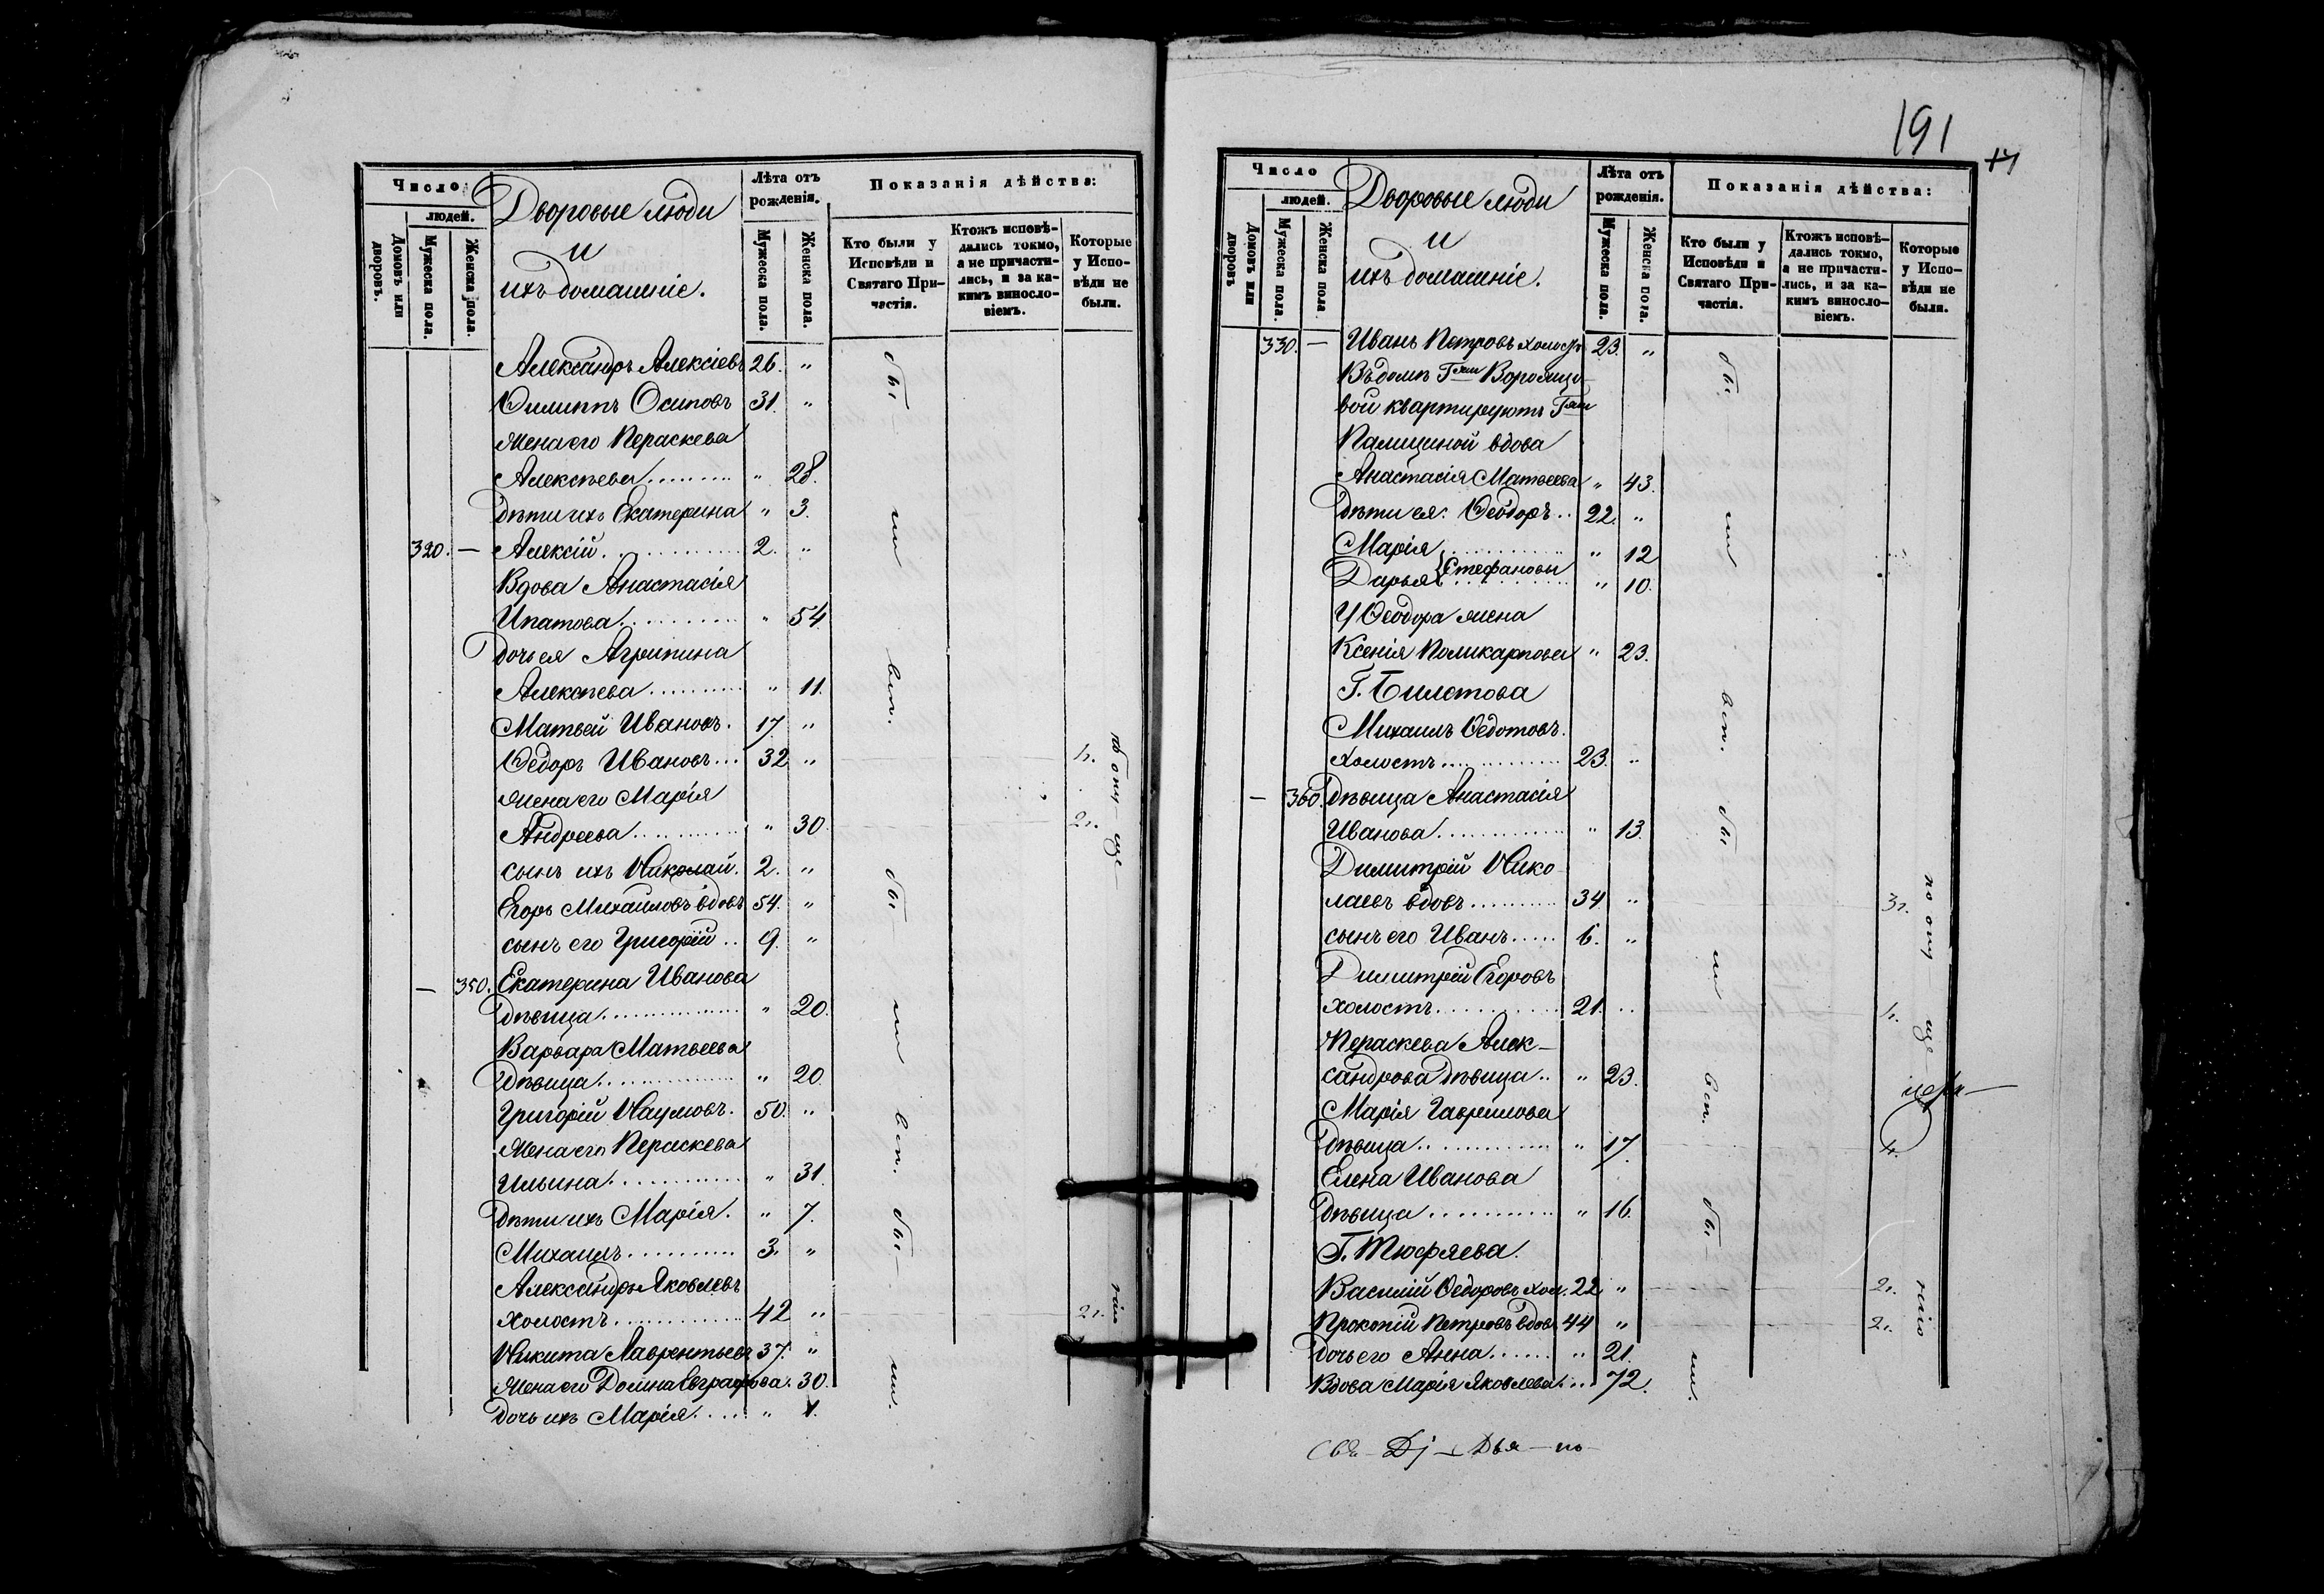 Число
людей.
Домовъ или дворовъ.
Мужеска пола.
Женска пола.
Дворовые люди
и
ихъ домашніе.
Лѣта отъ рожденія.
Мужеска пола.
Женска пола.
Показанія дѣйства:
Кто были у Исповѣди и Святаго При-частія.
Ктожъ исповѣ-дались токмо, а не причасти-лись, и за ка-кимъ виносло-віемъ.
Которые у Испо-вѣди не были.
Александръ Алексіевъ 26. "
Филиппъ Осиповъ 31. "
жена его Пераскева
Алексѣева " 28.
дѣти ихъ Екатерина " 3.
320. — Алексій 2. "
Вдова Анастасія
Ипатова " 54
дочь ея Агрипина
Алексѣева " 11.
Матвей Ивановъ. 17. "
Ѳедоръ Ивановъ 32 " 1.
жена его Марія
Андреева " 30. 2.
сынъ ихъ Николай. 2. "
Егоръ Михаиловъ вдовъ 54. "
сынъ его Григорій 9. "
— 350. Екатерина Иванова
дѣвица " 20.
Варвара Матвеева
дѣвица " 20.
Григорій Наумовъ. 50. "
жена его Пераскева
Ильина " 31
дѣти ихъ Марія. " 7.
Михаилъ 3. "
Александръ Яковлевъ
холостъ 42 " 2.
Никита Лаврентьевъ 37. "
жена его Домна Евграфова. 30.
дочь ихъ Марія " 1.
бы—
ли
вси.
бы—
ли
вси.
бы—
ли.
191
17
Число
людей.
Домовъ или дворовъ
Мужеска пола.
Женска пола
Дворовые люди
и
ихъ домашніе.
Лѣта отъ рожденія.
Мужеска пола.
Женска пола.
Показанія дѣйства:
Кто были у Исповѣди и Святаго При-частія.
Ктожъ исповѣ-дались токмо, а не причасти-лись, и за ка-кимъ виносло-віемъ.
Которые у Испо-вѣди не были.
330. — Иванъ Петровъ холостъ 23. "
Въ домѣ Гжи
вой квартируютъ Гжи
Палициной вдова
Анастасія Матвеева " 43.
дѣти ея: Ѳеодоръ 22. "
Марія " 12
Стефановы
Дарья " 10.
У Ѳеодора жена
Ксенія Поликарпова " 23.
Г. Билетова
Михаилъ Ѳедотовъ.
холостъ 23. "
— 360. дѣвица Анастасія
Иванова " 13.
Димитрій Нико
лаевъ вдовъ 34 " 3.
сынъ его Иванъ 6. "
Димитрій Егоровъ
холостъ 21. " 1.
Пераскева Алек—
сандрова дѣвица " 23.
Марія Гаврилова
дѣвица " 17. 1.
Елена Иванова
дѣвица " 16.
Г. Тюфяева.
Василій Ѳедоровъ хол. 22 " 2.
Прокопій Петровъ вдов 44 " 2.
дочь его Анна " 21.
Вдова Марія Яковлева. " 72.
бы—
ли
вси.
бы—
ли
вси.
бы—
ли.